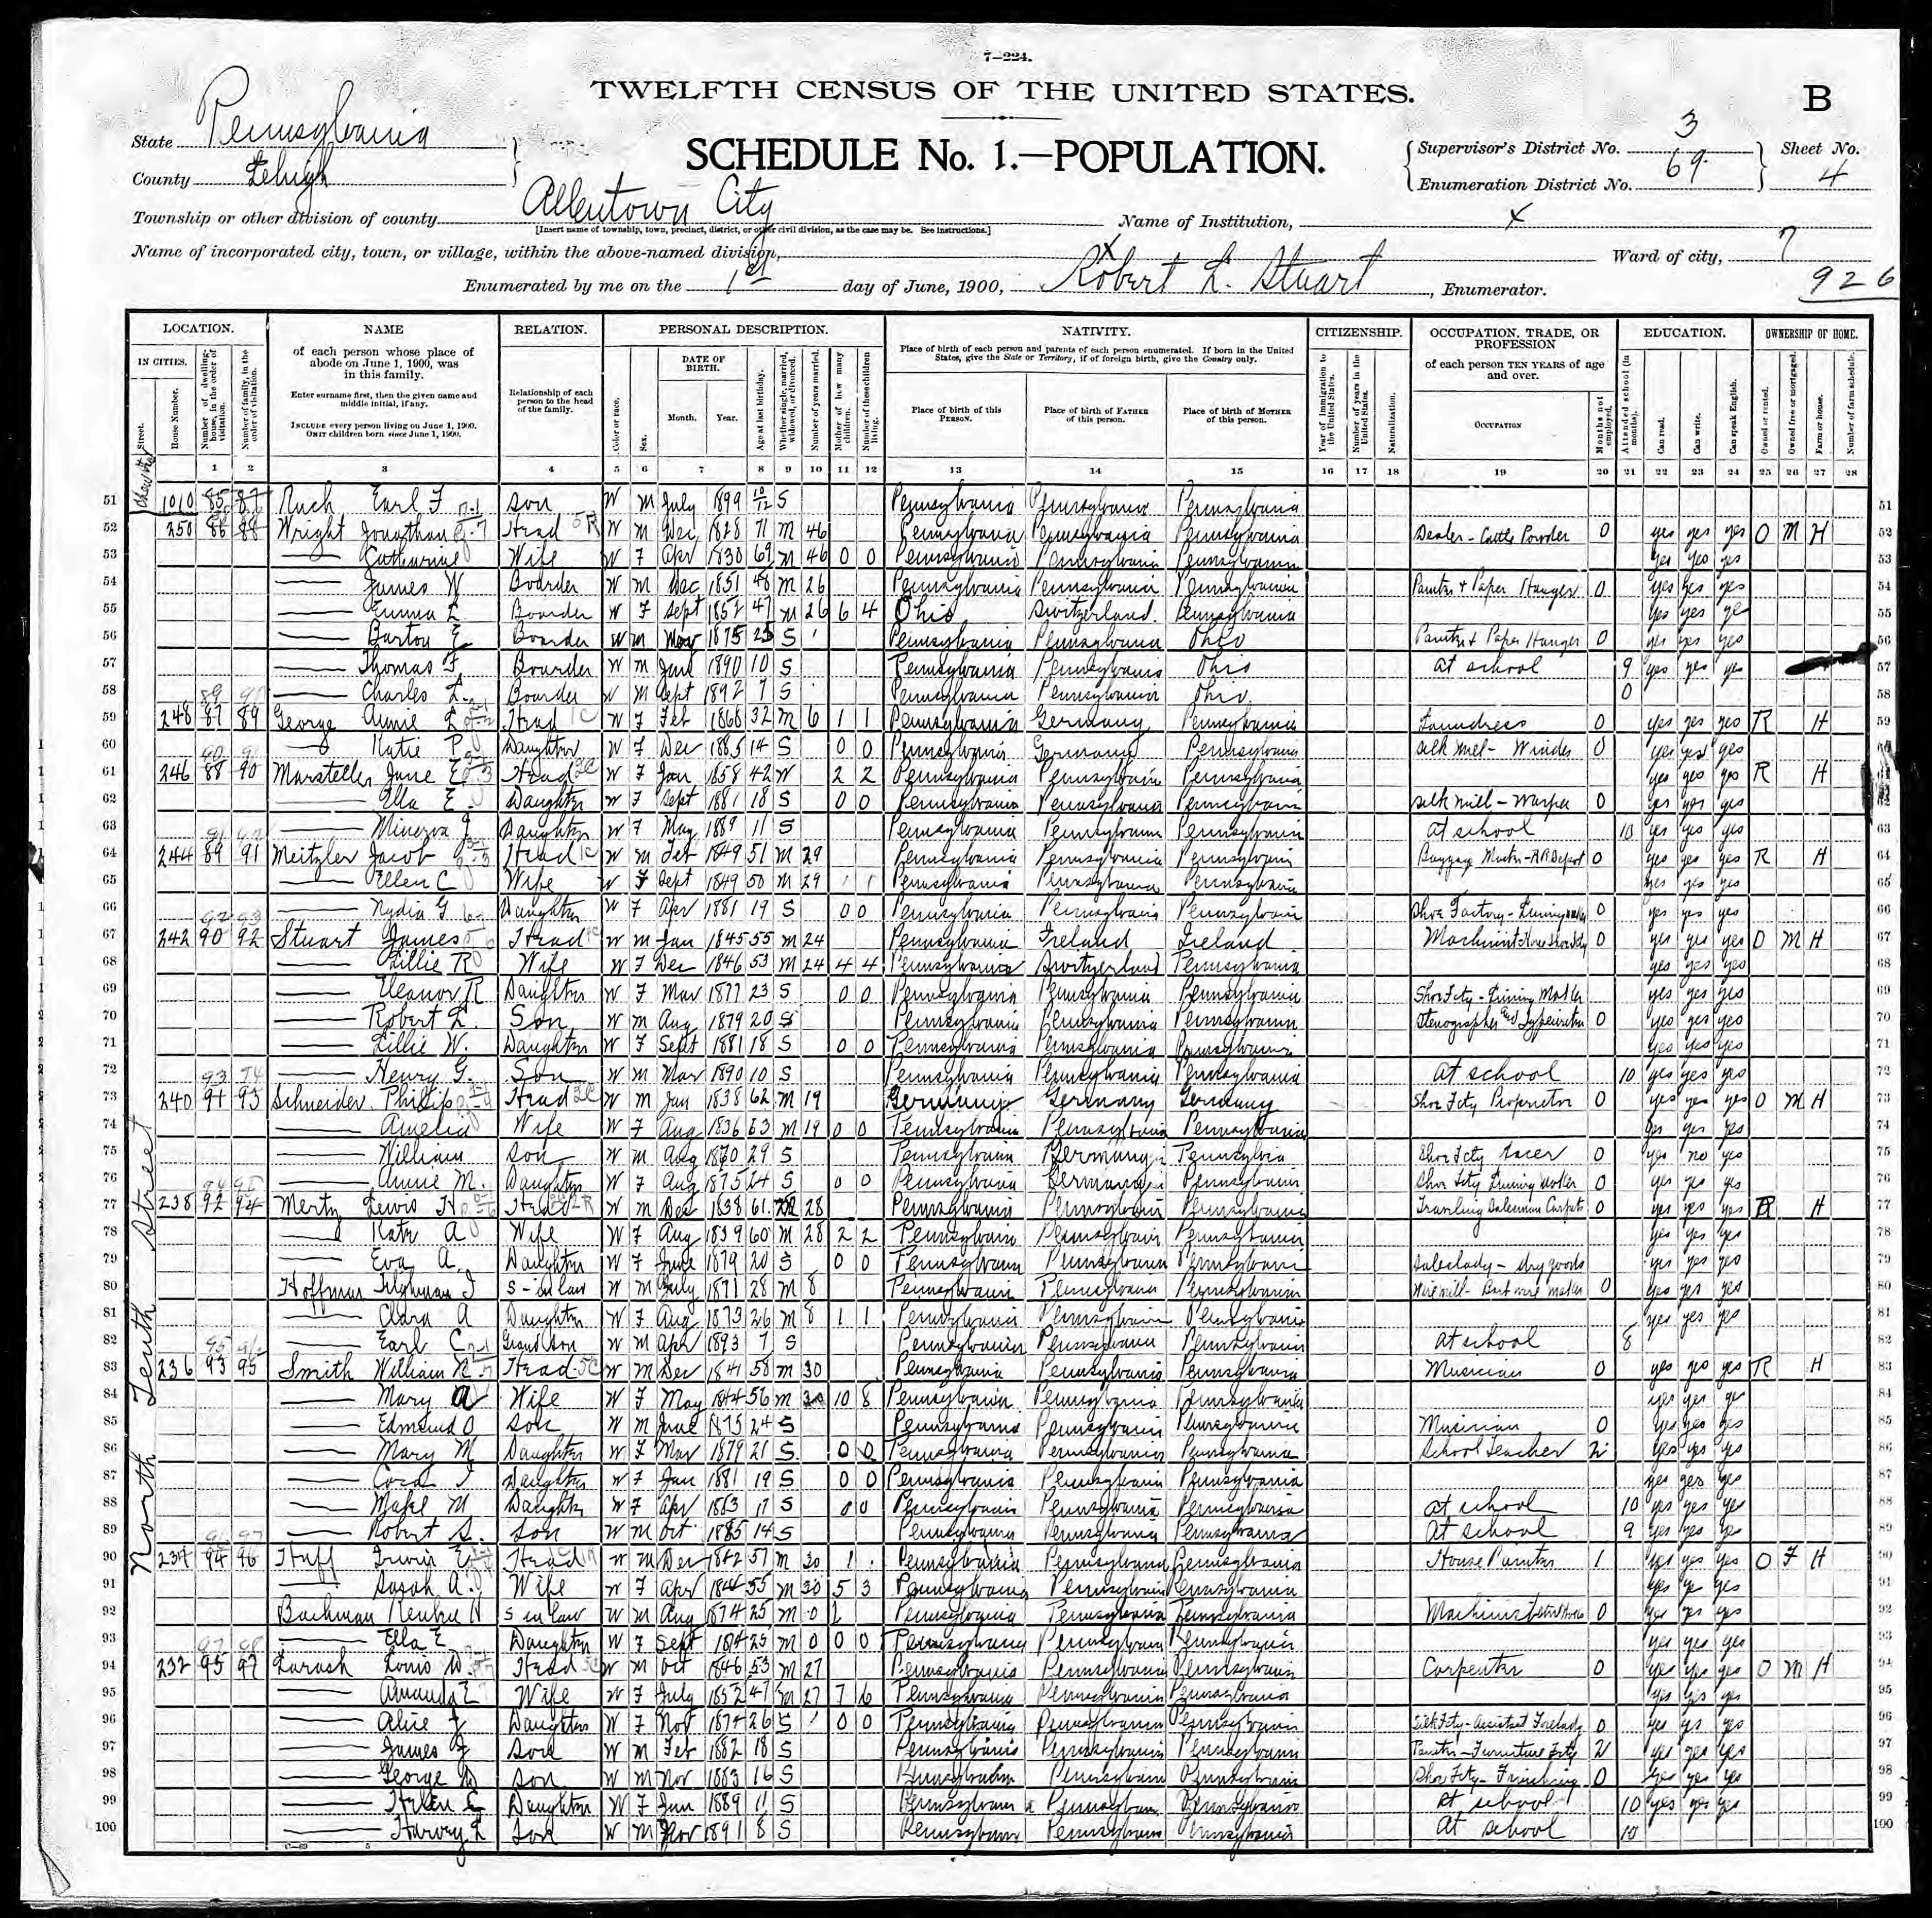 7—224.
TWELFTH CENSUS OF THE UNITED STATES.
B
State Pennsylvania
County Lehigh
SCHEDULE No. 1.—POPULATION.
Supervisor's District No. 3
Enumeration District No. 69
Sheet No. 4
Township or other division of county Allentown City
[Insert name of township, town, precinct, district, or other civil division, as the case may be. See instructions.]
Name of Institution, X
Name of incorporated city, town, or village, within the above-named division, X
Ward of city, 7
Enumerated by me on the 1st day of June, 1900, Robert L. Stuart, Enumerator.
926
LOCATION. NAME RELATION. PERSONAL DESCRIPTION. NATIVITY. CITIZENSHIP. OCCUPATION, TRADE, OR PROFESSION EDUCATION. OWNERSHIP OF HOME.
IN CITIES.
Street.
House Number.
Number of dwelling-house, in the order of visitation.
Number of family, in the order of visitation.
of each person whose place of abode on June 1, 1900, was in this family.
Enter surname first, then the given name and middle initial, if any.
INCLUDE every person living on June 1, 1900.
OMIT children born since June 1, 1900.
Relationship of each person to the head of the family.
Color or race.
Sex.
DATE OF BIRTH.
Month. Year.
Age at last birthday.
Whether single, married, widowed, or divorced.
Number of years married.
Mother of how many children.
Number of these children living.
Place of birth of each person and parents of each person enumerated. If born in the United States, give the State or Territory; if of foreign birth, give the Country only.
Place of birth of this PERSON.
Place of birth of FATHER of this person.
Place of birth of MOTHER of this person.
Year of immigration to the United States.
Number of years in the United States.
Naturalization.
of each person TEN YEARS of age and over.
OCCUPATION
Months not employed.
Attended school (in months).
Can read.
Can write.
Can speak English.
Owned or rented.
Owned free or mortgaged.
Farm or house.
Number of farm schedule.
1 2 3 4 5 6 7 8 9 10 11 12 13 14 15 16 17 18 19 20 21 22 23 24 25 26 27 28
North Tenth Street
51 1010 85 87 Ruch Earl F Son W M July 1899 10/12 S Pennsylvania Pennsylvania Pennsylvania 51
52 250 86 88 Wright Jonathan Head W M Dec 1828 71 M 46 Pennsylvania Pennsylvania Pennsylvania Dealer - Cattle Powder 0 yes yes yes O M H 52
53 Catherine Wife W F Apr 1830 69 M 46 0 0 Pennsylvania Pennsylvania Pennsylvania yes yes yes 53
54 James W Boarder W M Dec 1851 48 M 26 Pennsylvania Pennsylvania Pennsylvania Painter & Paper Hanger 0 yes yes yes 54
55 Emma L Boarder W F Sept 1852 47 M 26 6 4 Ohio Switzerland Pennsylvania yes yes ye 55
56 Burton E Boarder W M May 1875 25 S Pennsylvania Pennsylvania Ohio Painter & Paper Hanger 0 yes yes yes 56
57 Thomas F Boarder W M 1890 10 S Pennsylvania Pennsylvania Ohio at school 9 yes yes ye 57
58 Charles L. Boarder W M Sept 1892 7 S Pennsylvania Pennsylvania Ohio 0 58
59 248 87 89 George Annie L Head W F Feb 1868 32 M 6 1 1 Pennsylvania Germany Pennsylvania Laundress 0 yes yes yes R H 59
60 Katie P Daughter W F Dec 1885 14 S 0 0 Pennsylvania Germany Pennsylvania silk mill - Winder 0 yes yes yes 60
61 246 88 90 Marsteller Jane E Head W F Jan 1858 42 W 2 2 Pennsylvania Pennsylvania Pennsylvania yes yes yes R H 61
62 Ella E Daughter W F Sept 1881 18 S 0 0 Pennsylvania Pennsylvania Pennsylvania silk mill - Warper 0 yes yes yes 62
63 Minerva J Daughter W F May 1889 11 S Pennsylvania Pennsylvania Pennsylvania at school 10 yes yes yes 63
64 244 89 91 Meitzler Jacob Head W M Feb 1849 51 M 29 Pennsylvania Pennsylvania Pennsylvania Baggage Master - RR Depot 0 yes yes yes R H 64
65 Ellen C Wife W F Sept 1849 50 M 29 1 1 Pennsylvania Pennsylvania Pennsylvania yes yes yes 65
66 Nydia G Daughter W F Apr 1881 19 S 0 0 Pennsylvania Pennsylvania Pennsylvania Shoe Factory - Lining maker 0 yes yes yes 66
67 242 90 92 Stuart James Head W M Jan 1845 55 M 24 Pennsylvania Ireland Ireland Machinist 0 yes yes yes O M H 67
68 Lillie R Wife W F Dec 1846 53 M 24 4 4 Pennsylvania Switzerland Pennsylvania yes yes yes 68
69 Eleanor R Daughter W F Mar 1877 23 S 0 0 Pennsylvania Pennsylvania Pennsylvania Shoe Fcty - Lining Maker yes yes yes 69
70 Robert L. Son W M Aug 1879 20 S Pennsylvania Pennsylvania Pennsylvania Stenographer and Typewriter 0 yes yes yes 70
71 Lillie W. Daughter W F Sept 1881 18 S 0 0 Pennsylvania Pennsylvania Pennsylvania yes yes yes 71
72 Henry G. Son W M Mar 1890 10 S Pennsylvania Pennsylvania Pennsylvania at school 10 yes yes yes 72
73 240 91 93 Schneider Phillip Head W M Jan 1838 62 M 19 Germany Germany Germany Shoe Fcty Proprietor 0 yes yes yes O M H 73
74 Amelia Wife W F Aug 1836 63 M 19 0 0 Pennsylvania Pennsylvania Pennsylvania yes yes yes 74
75 William Son W M Aug 1870 29 S Pennsylvania Germany Pennsylvania Shoe Fcty 0 yes no yes 75
76 Annie M. Daughter W F Aug 1875 24 S 0 0 Pennsylvania Germany Pennsylvania Shoe Fcty Lining Maker 0 yes yes yes 76
77 238 92 94 Mertz Lewis H Head W M Dec 1838 61 M 28 Pennsylvania Pennsylvania Pennsylvania Traveling Salesman Carpets 0 yes yes yes R H 77
78 Kate A Wife W F Aug 1839 60 M 28 2 2 Pennsylvania Pennsylvania Pennsylvania yes yes yes 78
79 Eva A. Daughter W F June 1879 20 S 0 0 Pennsylvania Pennsylvania Pennsylvania Saleslady - dry goods yes yes yes 79
80 Hoffman Tilghman J S-in law W M July 1871 28 M 8 Pennsylvania Pennsylvania Pennsylvania Wire mill - Barb wire maker 0 yes yes yes 80
81 Clara A Daughter W F Aug 1873 26 M 8 1 1 Pennsylvania Pennsylvania Pennsylvania yes yes yes 81
82 Earl C Grandson W M Apr 1893 7 S Pennsylvania Pennsylvania Pennsylvania at school 8 82
83 236 93 95 Smith William Head W M Dec 1841 58 M 30 Pennsylvania Pennsylvania Pennsylvania Musician 0 yes yes yes R H 83
84 Mary A Wife W F May 1844 56 M 30 10 8 Pennsylvania Pennsylvania Pennsylvania yes yes ye 84
85 Edmund O Son W M June 1875 24 S Pennsylvania Pennsylvania Pennsylvania Musician 0 yes yes yes 85
86 Mary M Daughter W F Mar 1879 21 S 0 0 Pennsylvania Pennsylvania Pennsylvania School Teacher 2 yes yes yes 86
87 Cora I Daughter W F Jan 1881 19 S 0 0 Pennsylvania Pennsylvania Pennsylvania yes yes yes 87
88 M Daughter W F Apr 1883 17 S 0 0 Pennsylvania Pennsylvania Pennsylvania at school 10 yes yes yes 88
89 Robert S. Son W M Oct 1885 14 S Pennsylvania Pennsylvania Pennsylvania at school 9 yes yes yes 89
90 234 94 96 Huff Irwin E Head W M Dec 1842 57 M 30 Pennsylvania Pennsylvania Pennsylvania House Painter 1 yes yes yes O F H 90
91 Sarah A. Wife W F Apr 1844 55 M 30 5 3 Pennsylvania Pennsylvania Pennsylvania yes ye yes 91
92 Bachman Reuben H S in law W M Aug 1874 25 M 0 Pennsylvania Pennsylvania Pennsylvania Machinist 0 yes yes yes 92
93 Ella E Daughter W F Sept 25 M 0 0 0 Pennsylvania Pennsylvania Pennsylvania yes yes yes 93
94 232 95 97 Larash Louis W Head W M Oct 1846 53 M 27 Pennsylvania Pennsylvania Pennsylvania Carpenter 0 yes yes yes O M H 94
95 Amanda E Wife W F July 1852 47 M 27 7 6 Pennsylvania Pennsylvania Pennsylvania yes yes yes 95
96 Alice J Daughter W F Nov 1874 26 S 0 0 Pennsylvania Pennsylvania Pennsylvania Silk Fcty - Assistant Forelady 0 yes yes yes 96
97 James J Son W M Feb 1882 18 S Pennsylvania Pennsylvania Pennsylvania Painter - Furniture Fcty 2 yes yes yes 97
98 George W Son W M Nov 1883 16 S Pennsylvania Pennsylvania Pennsylvania Shoe Fcty - Finishing 0 yes yes yes 98
99 Helen E Daughter W F Jun 1889 11 S Pennsylvania Pennsylvania Pennsylvania at school 10 yes yes yes 99
100 Harvey L Son W M Nov 1891 8 S Pennsylvania Pennsylvania Pennsylvania at school 10 100